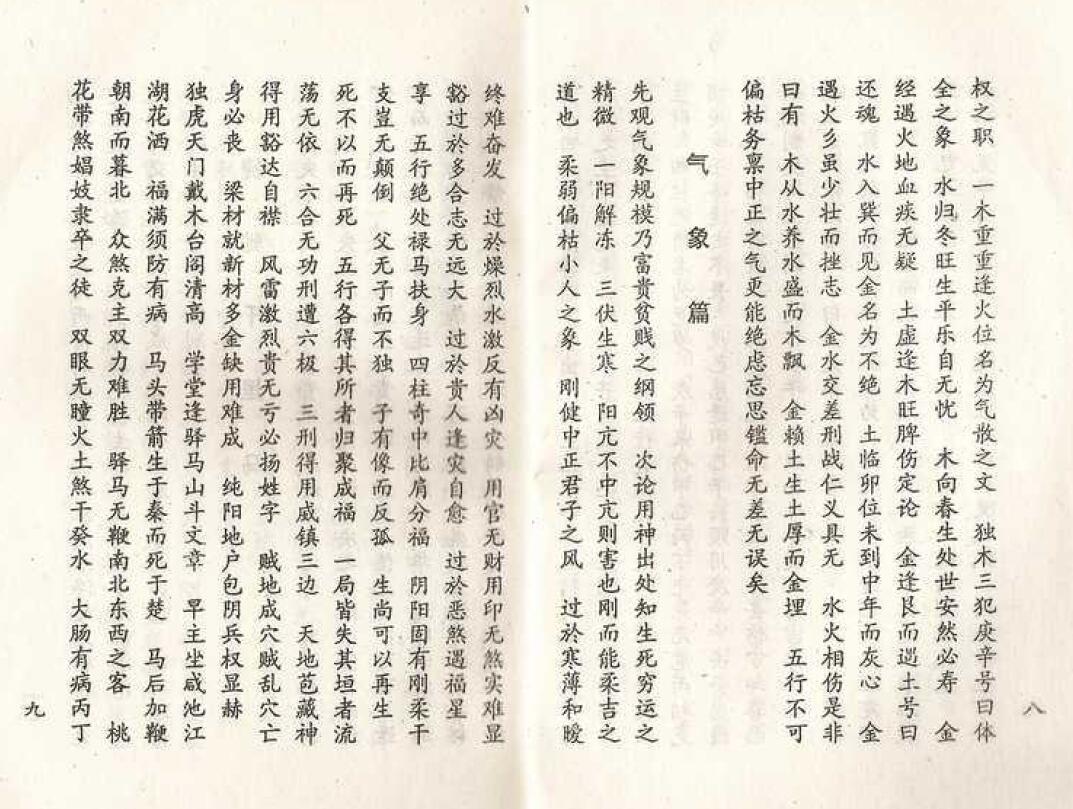 权之职　一木重重逢火位名为气散之文　独木三犯庚辛号曰体
全之象　水归冬旺生平乐自无忧　木向春生处世安然必寿　金
经遇火地血疾无疑　土虚逢木旺脾伤定论　金逢艮而遇土号曰
还魂　水入巽而见金名为不绝　土临卯位未到中年而灰心　金
遇火乡虽少壮而挫志　金水交差刑战仁义具无　水火相伤是非
曰有　木从水养水盛而木飘　金赖土生土厚而金埋　五行不可
偏枯务禀中正之气更能绝虑忘思鉴命无差无误矣
气象篇
先观气象规模乃富贵贫贱之纲领　次论用神出处知生死穷运之
精微　一阳解冻　三伏生寒　阳亢不中亢则害也刚而能柔吉之
道也　柔弱偏枯小人之象　刚健中正君子之风　过於寒薄和暧
八
终难奋发　过於燥烈水激反有凶灾　用官无财用印无煞实难显
豁过於多合志无远大　过於贵人逢灾自愈　过於恶煞遇福星
享　五行绝处禄马扶身　四柱奇中比肩分福　阴阳固有刚柔干
支岂无颠倒　父无子而不独　子有像而反孤　生尚可以再生
死不以而再死　五行各得其所者归聚成福　一局皆失其垣者流
荡无依　六合无功刑遭六极　三刑得用威镇三边　天地苞藏神
得用豁达自襟　风雷激烈贵无亏必扬姓字　贼地成穴贼乱穴亡
身必丧　梁材就新材多金缺用难成　纯阳地户包阴兵权显赫
独虎天门戴木台阁清高　学堂逢驿马山斗文章　早主坐咸池江
湖花洒　福满须防有病　马头带箭生于秦而死于楚　马后加鞭
朝南而暮北　众煞克主双力难胜　驿马无鞭南北东西之客　桃
花带煞娼妓隶卒之徒　双眼无瞳火土煞干癸水　大肠有病丙丁
九